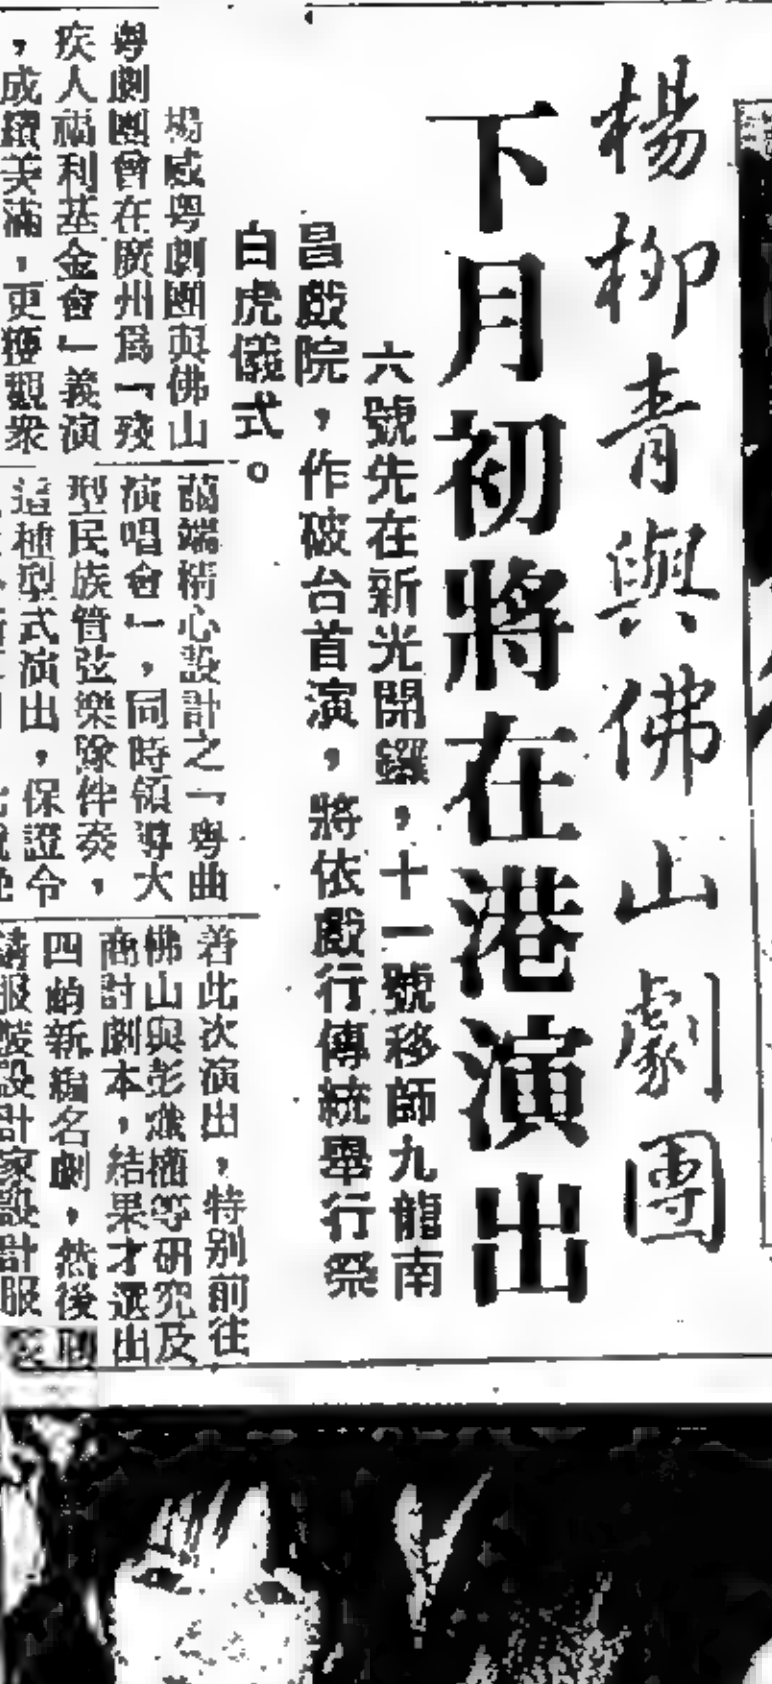 楊柳青與佛山劇團
下月初將在港演出
六號先在新光開鑼，十一號移師九龍南
昌戲院，作破台首演，將依戲行傳統舉行祭
白虎儀式。
楊威粤劇團與佛山
粤劇團曾在廣州為「殘
疾人福利基金會」義演
，成績美滿，更獲觀衆
藹端精心設計之「粤曲
演唱會」，同時領導大
型民族管弦樂隊伴奏，
這種型式演出，保證令
着此次演出，特別前往
佛山與彭熾權等研究及
商計劇本，結果才選出
四齣新編名劇，然後
請服裝設計家設計服